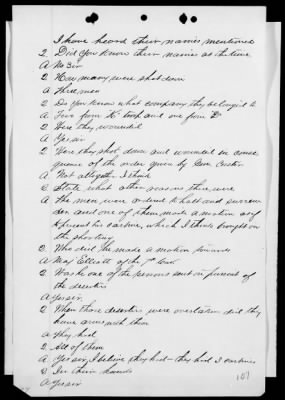 I have heard their names mentioned
Q Did you know their names at the time
A No Sir
Q How many were shot down
A Three men
Q Do you know what company they belonged to
A Two from K troop and one from
Q Were they wounded
A Yes sir
Q Were they shot down and wounded in conse
quence of the order given by Gen Custer
A Not altogether I think
Q State what other reasons there were
A The men were ordered to halt and surren
der and one of them made a motion as if
to present his carbine, which I think brought on
the shooting
Q Who did he made a motion towards
A Maj Elliott of the 7" Cav.
Q Was he one of the persons sent in pursuit of
the deserters
A Yes sir
Q When those deserters were overtaken did they
have arms with them
A They had
Q All of them
A Yes sir, I believe they had - they had carbines
Q In their hands
A Yes sir
107